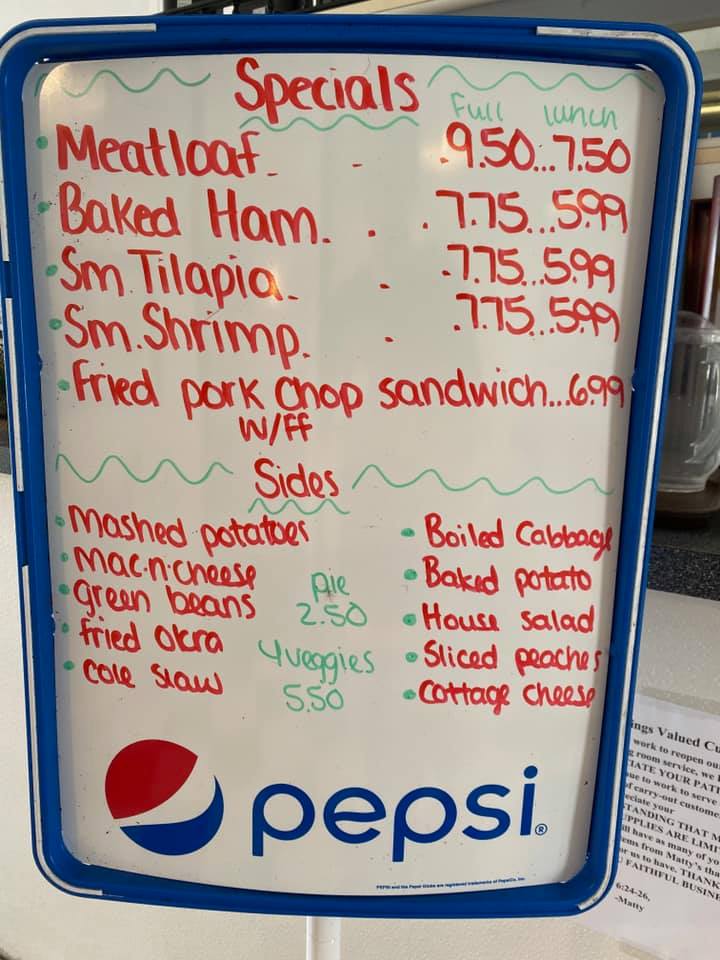 Specials
Full lunch
Meatloaf. . .9.50...7.50
Baked Ham. . .7.75...5.99
Sm Tilapia. . .7.75...5.99
Sm. Shrimp. . .7.75..5.99
Fried pork chop sandwich...6.99
W/FF
Sides
Mashed potatoes
Mac.n.cheese
green beans
fried okra
cole slaw
pie
2.50
4 veggies
5.50
Boiled Cabbage
Baked potato
House salad
Sliced peaches
Cottage cheese
pepsi®
PEPSI and the Pepsi Globe are registered trademarks of PepsiCo, Inc.
ings Valued
work to reopen
room service, we
YOUR
to work to serve
carry-out
your
THAT
ARE
have as many of
from Matty's
us to have. THANK
FAITHFUL
6:24-26,
-Matty